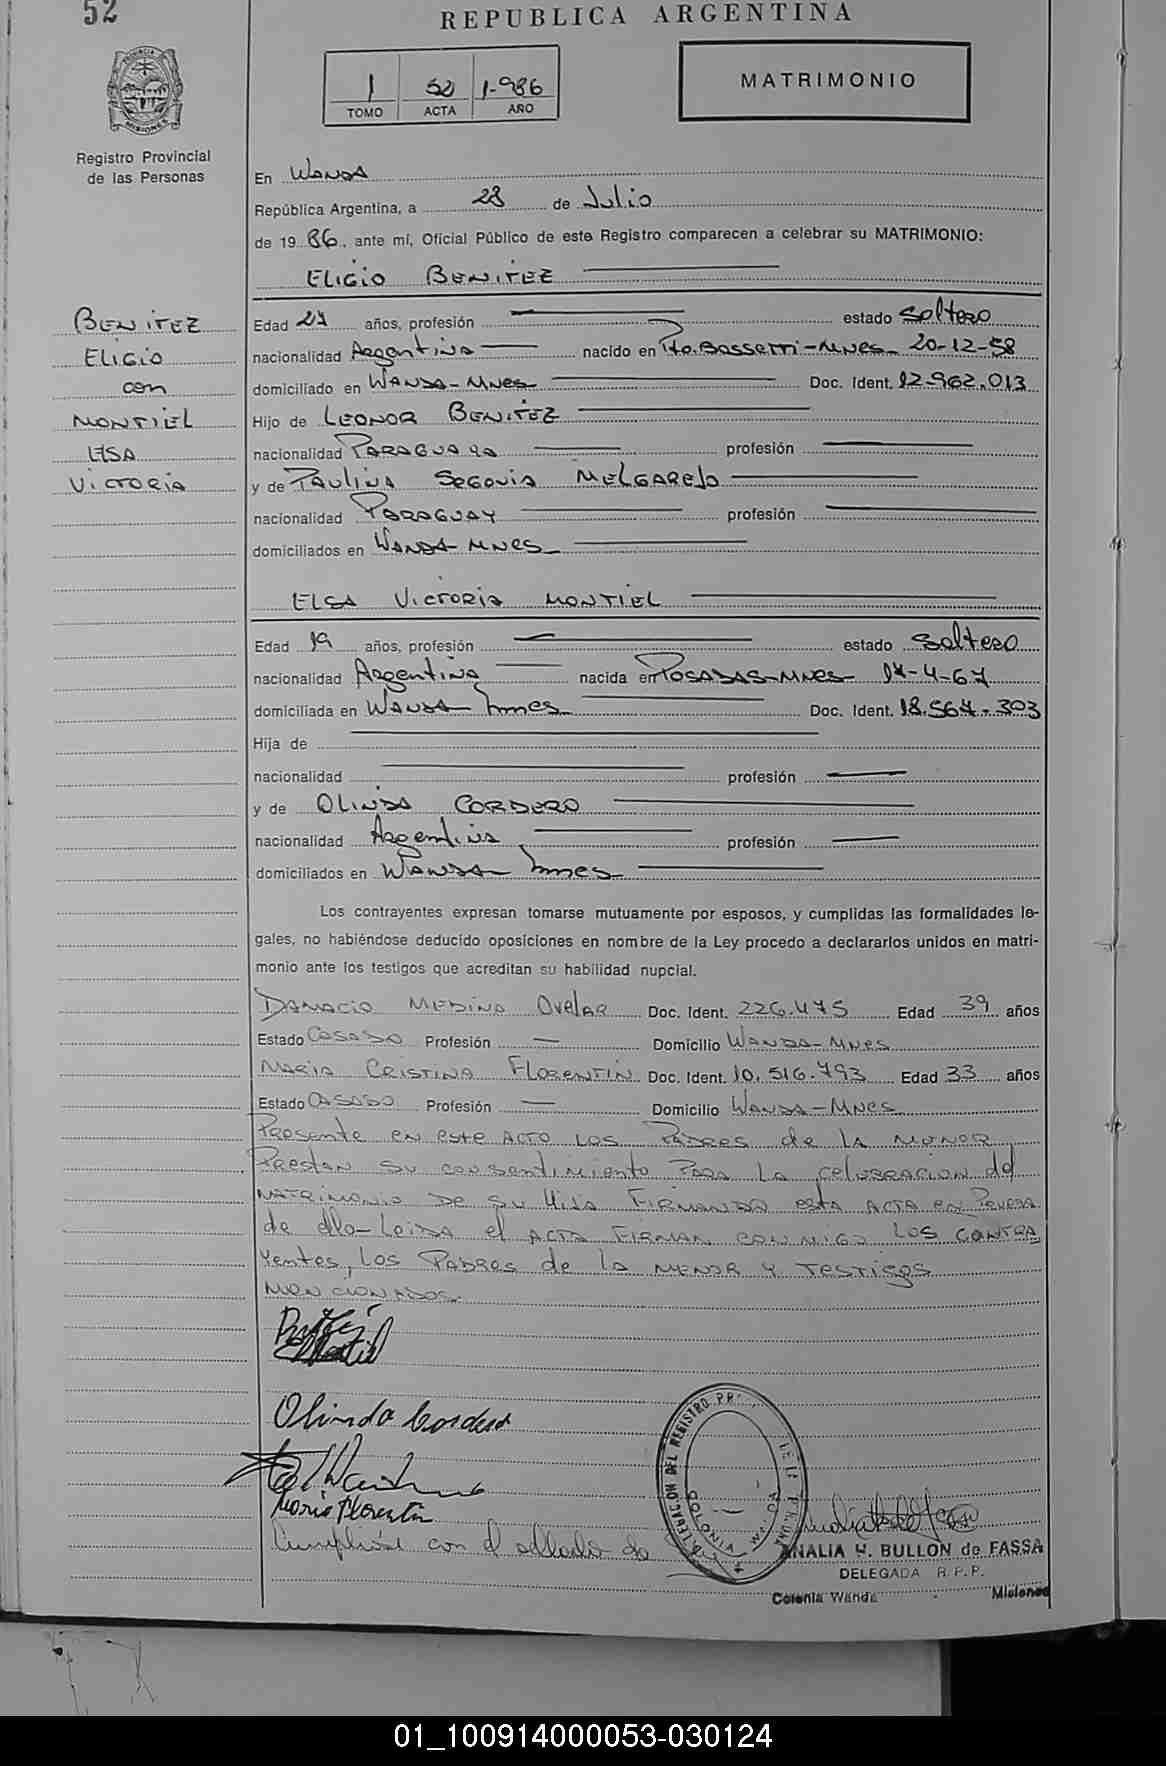 52
REPUBLICA ARGENTINA
1 52 1-986
TOMO ACTA AÑO
MATRIMONIO
PROVINCIA
MISIONES
Registro Provincial
de las Personas
En WANDA
República Argentina, a 28 de Julio
de 1986, ante mí, Oficial Público de este Registro comparecen a celebrar su MATRIMONIO:
ELIGIO BENITEZ
BENITEZ
ELIGIO
con
MONTIEL
ELSA
VICTORIA
Edad 27 años, profesión — estado Soltero
nacionalidad Argentina — nacido en Pto. Bossetti - Mnes - 20-12-58
domiciliado en WANDA - Mnes — Doc. Ident. 12.962.013
Hijo de LEONOR BENITEZ
nacionalidad PARAGUAYA — profesión —
y de PAULINA SEGOVIA MELGAREJO
nacionalidad PARAGUAY — profesión —
domiciliados en WANDA - MNES
ELSA VICTORIA MONTIEL
Edad 19 años, profesión — estado Soltero
nacionalidad Argentina — nacida en POSADAS - MNES - 17-4-67
domiciliada en WANDA - Mnes — Doc. Ident. 18.567.303
Hija de —
nacionalidad — profesión —
y de OLINDA CORDERO
nacionalidad Argentina — profesión —
domiciliados en WANDA - Mnes
Los contrayentes expresan tomarse mutuamente por esposos, y cumplidas las formalidades le-
gales, no habiéndose deducido oposiciones en nombre de la Ley procedo a declararlos unidos en matri-
monio ante los testigos que acreditan su habilidad nupcial.
DAMACIO MEDINA OVELAR Doc. Ident. 226.475 Edad 39 años
Estado CASADO Profesión — Domicilio WANDA - MNES
MARIA CRISTINA FLORENTIN Doc. Ident. 10.516.793 Edad 33 años
Estado CASADO Profesión — Domicilio WANDA - MNES
Presente en este ACTO LOS PADRES de la MENOR
PRESTAN SU consentimiento PARA LA CELEBRACION del
MATRIMONIO DE SU HIJA FIRMANDO esta ACTA en PRUEBA
de ello - Leida el ACTA FIRMAN CONMIGO LOS CONTRA
yentes, LOS PADRES de la MENOR Y TESTIGOS
MENCIONADOS.
Olinda Cordero
Maria Florentin
Cumplióse con el sellado de
DELEGACION DEL REGISTRO
ANALIA H. BULLON de FASSA
DELEGADA R.P.P.
Colonia Wanda - Misiones
01_100914000053-030124